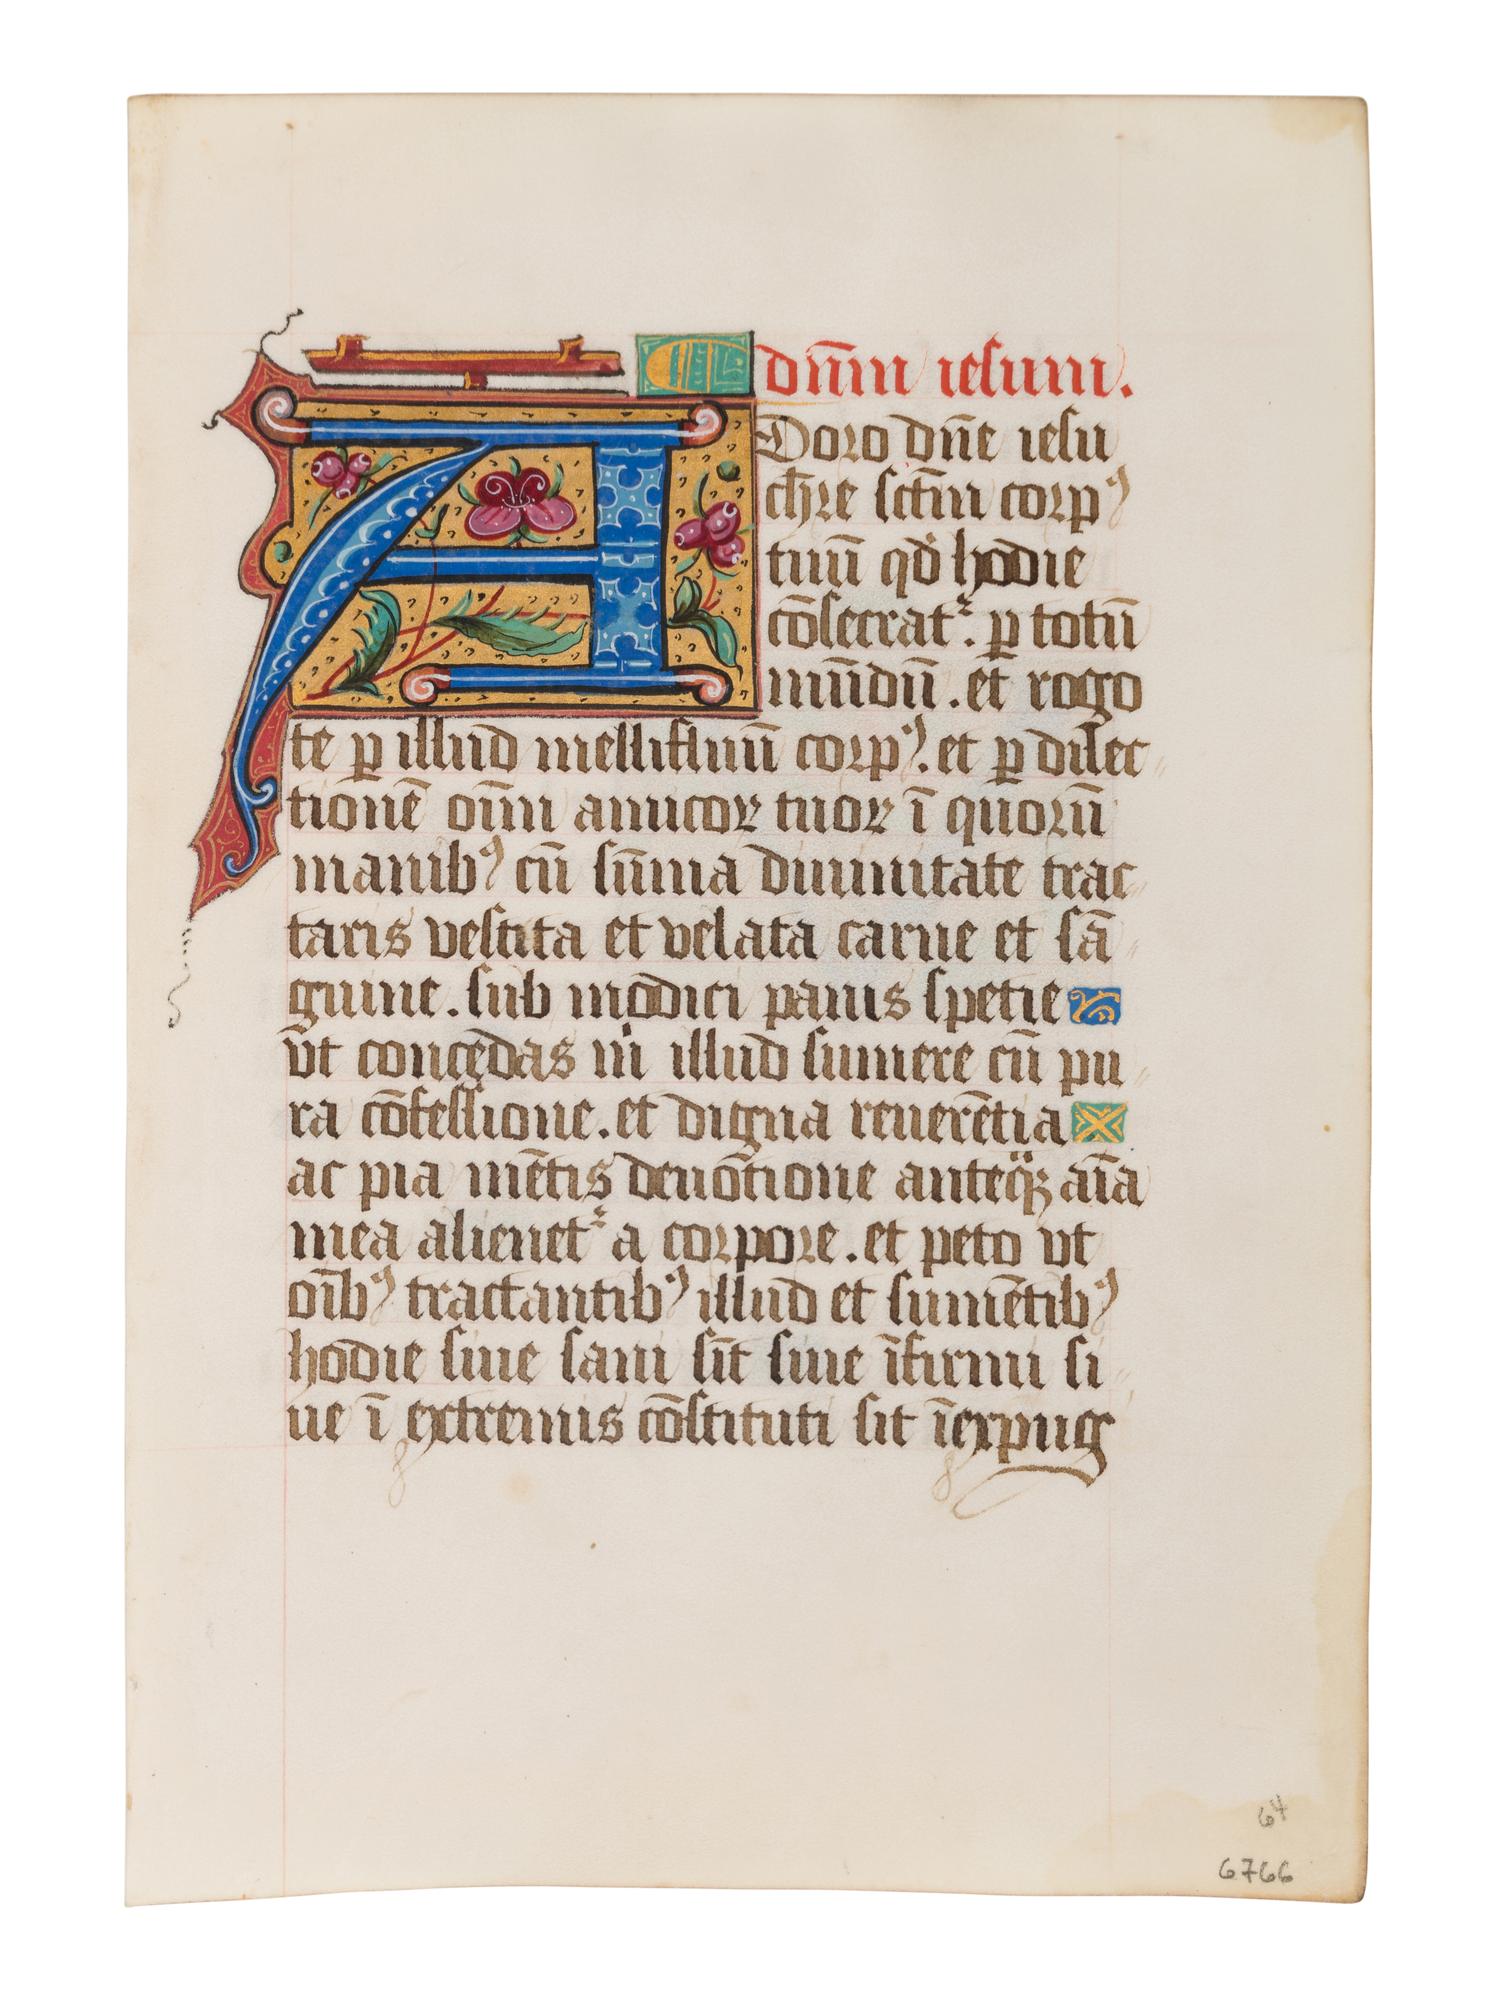 dn̄m iesum.
Adoro dn̄e iesu
chr̄e sctm̄ corpꝰ
tuū qd̄ hodie
cōsecratᷣ. ꝑ totū
mūdū. et rogo
te ꝑ illud mellifluū corpꝰ. et ꝑ dilec-
tionē oīm amicoꝝ tuoꝝ ī quorū
manibꝰ cū sūma diuinitate trac-
taris vestita et velata carne et sā-
guine. sub modici panis spetie
vt concedas m̍ illud sumere cū pu-
ra cōfessione. et digna reuerētia
ac pia mētis deuōtione anteqꝫ aīa
mea alienetᷣ a corpore. et peto vt
oībꝰ tractantibꝰ illud et sumētibꝰ
hodie siue sani sīt siue īfirmi si-
ue ī extremis cōstituti sit īexpug
64
6766